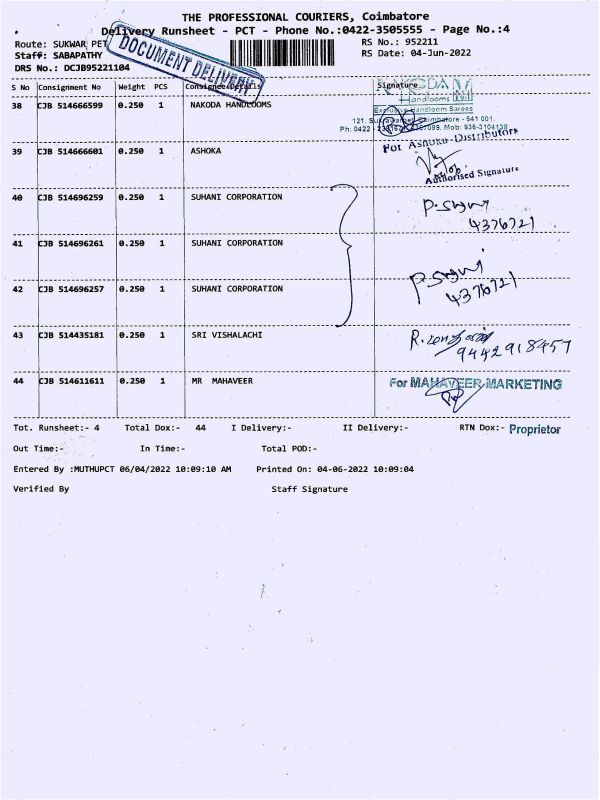 THE PROFESSIONAL COURIERS, Coimbatore
Delivery Runsheet - PCT - Phone No.:0422-3505555 - Page No.:4
Route: SUKWAR PET
RS No.: 952211
Staff: SABAPATHY
RS Date: 04-Jun-2022
DRS No.: DCJB95221104
DOCUMENT DELIVERY
S No Consignment No Weight PCS Consignee Details Signature
38 CJB 514666599 0.250 1 NAKODA HANDLOOMS
NAKODA
Handlooms
Exclusive Handloom Sarees
Coimbatore - 641 001
39 CJB 514666601 0.250 1 ASHOKA
For Ashoka Distributors
Authorised Signature
40 CJB 514696259 0.250 1 SUHANI CORPORATION
4376721
41 CJB 514696261 0.250 1 SUHANI CORPORATION
42 CJB 514696257 0.250 1 SUHANI CORPORATION
4376721
43 CJB 514435181 0.250 1 SRI VISHALACHI
9442918457
44 CJB 514611611 0.250 1 MR MAHAVEER
For MAHAVEER MARKETING
Tot. Runsheet:- 4 Total Dox:- 44 I Delivery:- II Delivery:- RTN Dox:- Proprietor
Out Time:- In Time:- Total POD:-
Entered By :MUTHUPCT 06/04/2022 10:09:10 AM Printed On: 04-06-2022 10:09:04
Verified By Staff Signature